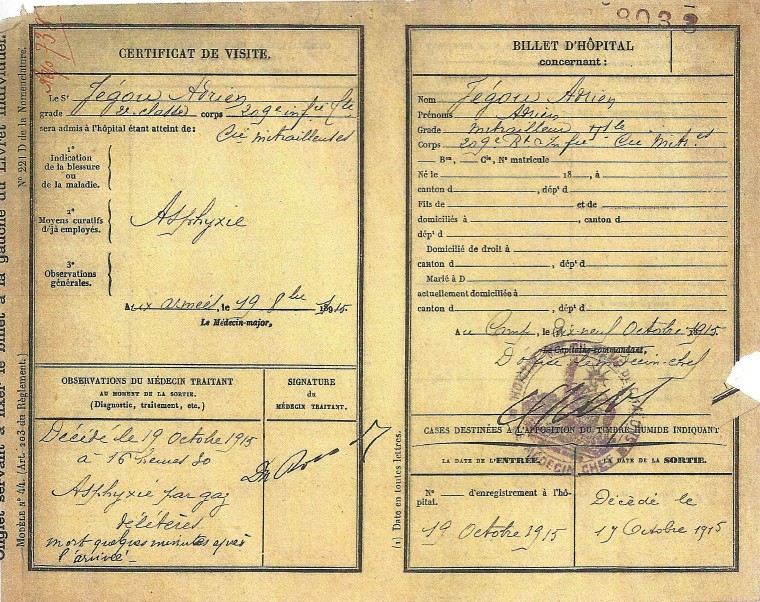 Onglet servant à fixer le billet à la gauche du Livret individuel.
N° 221 D de la Nomenclature.
MODÈLE N° 44. (Art. 203 du Règlement.)
CERTIFICAT DE VISITE.
Le Sr Jégou Adrien
grade 2e classe corps 209e infrie
sera admis à l'hôpital étant atteint de: Cie mitrailleuses
1°
Indication
de la blessure
ou de la maladie.
2°
Moyens curatifs
déjà employés.
Asphyxie
3°
Observations
générales.
Aux armées, le 19 8bre 1915
Le Médecin-major,
OBSERVATIONS DU MÉDECIN TRAITANT
AU MOMENT DE LA SORTIE.
(Diagnostic, traitement, etc.)
SIGNATURE
du
MÉDECIN TRAITANT.
Décédé le 19 Octobre 1915
à 16 heures 30
Asphyxié par gaz
délétères
mort quelques minutes après
l'arrivée
803
BILLET D'HÔPITAL
concernant :
Nom Jégou Adrien
Prénoms Adrien
Grade mitrailleur
Corps 209e Rt Infie Cie Mitres
— Bon, — Cie, N° matricule
Né le 18 , à
canton d , dépt d
Fils de et de
domiciliés à , canton d
dépt d
Domicilié de droit à
canton d , dépt d
Marié à D
actuellement domiciliée à
canton d , dépt d
Au Camp, le dix-neuf Octobre 1915
Le Capitaine-commandant,
D'office le médecin-chef
MÉDECIN CHEF
CASES DESTINÉES À L'APPOSITION DU TIMBRE HUMIDE INDIQUANT
LA DATE DE L'ENTRÉE.
LA DATE DE LA SORTIE.
(1) Date en toutes lettres.
N° — d'enregistrement à l'hô-
pital.
19 Octobre 1915
Décédé le
19 Octobre 1915